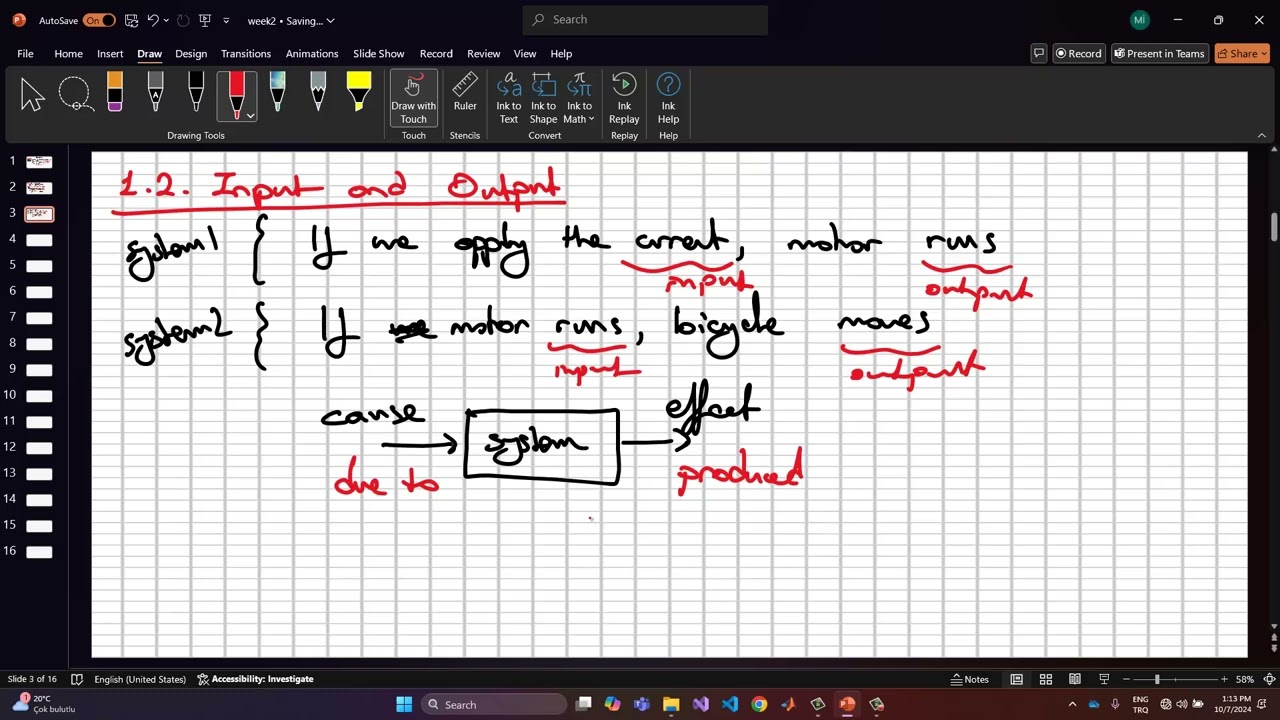 AutoSave On week2 • Saving... Search Mİ
File Home Insert Draw Design Transitions Animations Slide Show Record Review View Help Record Present in Teams Share
Draw with Touch Ruler Ink to Text Ink to Shape Ink to Math Ink Replay Ink Help
Drawing Tools Touch Stencils Convert Replay Help
1
2
3
4
5
6
7
8
9
10
11
12
13
14
15
16
1.2. Input and Output
system1 { If we apply the current, motor runs
input output
system2 { If motor runs, bicycle moves
input output
cause system effect
due to produced
Slide 3 of 16 English (United States) Accessibility: Investigate Notes 58%
1 20°C
Çok bulutlu
Search
ENG
TRQ
1:13 PM
10/7/2024